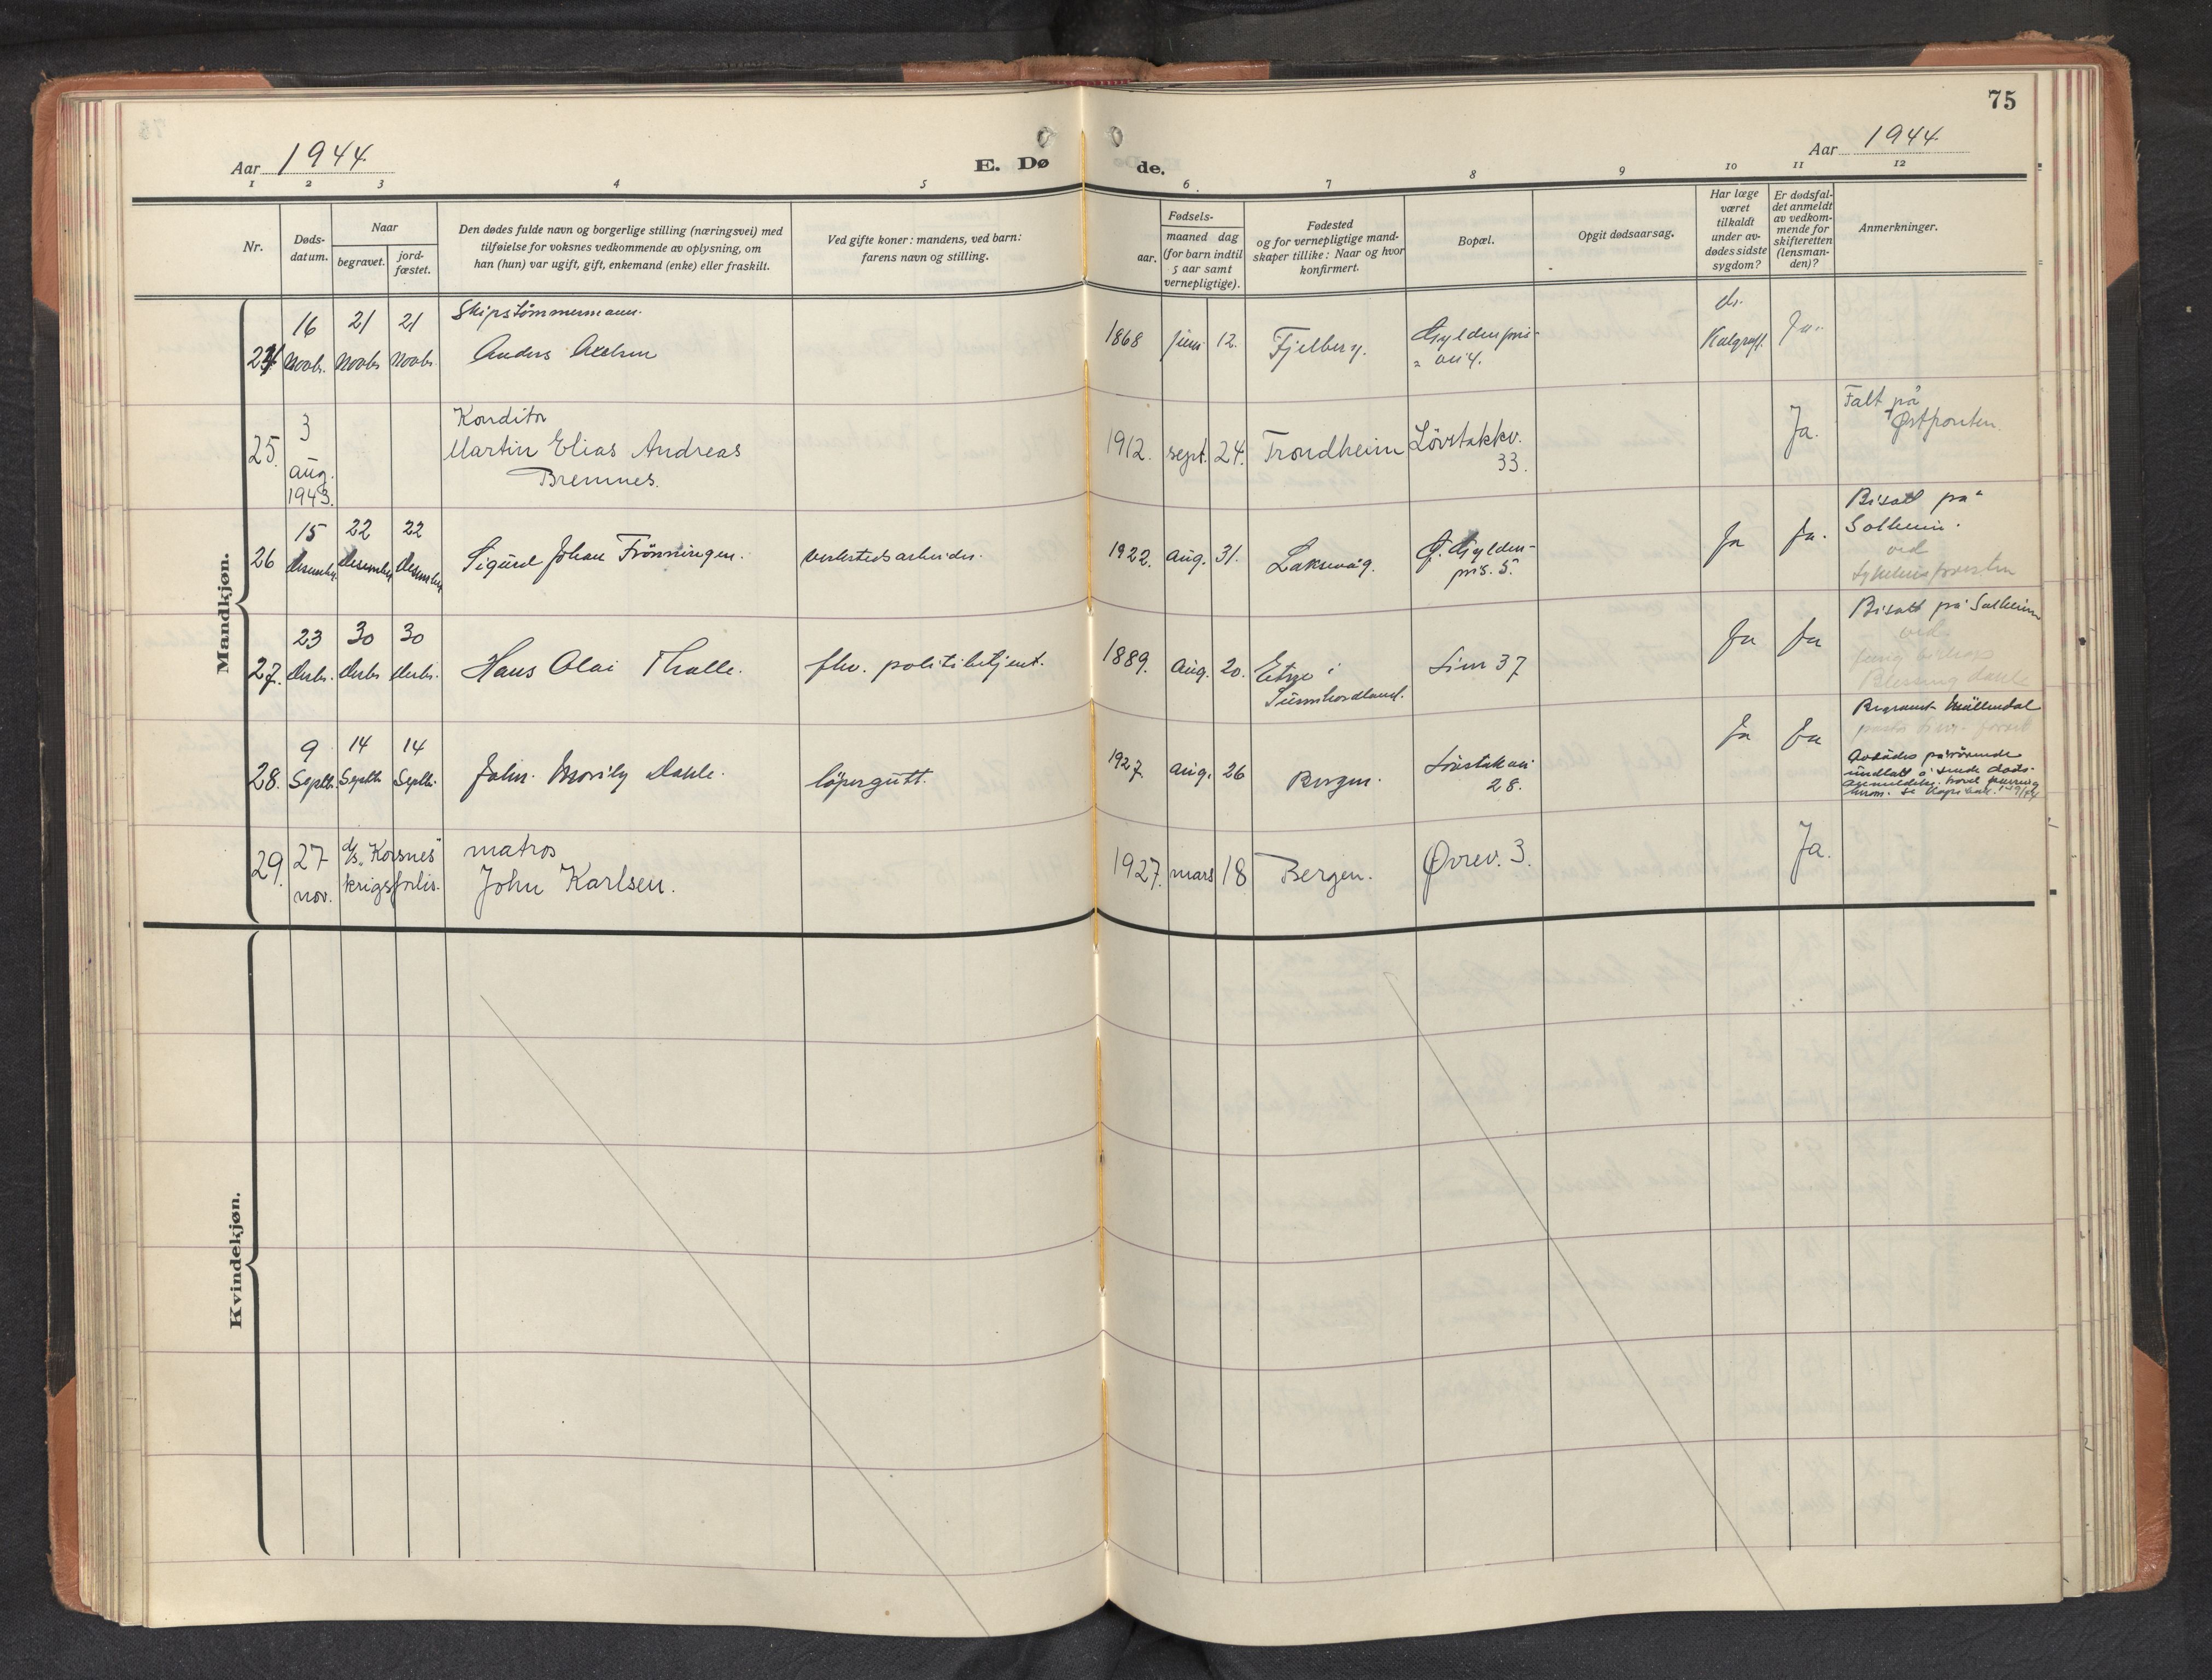 75
Aar 1944
E. Dø de.
Aar 1944
1 2 3 4 5 6. 7 8 9 10 11 12
Nr.
Døds-
datum.
Naar
begravet.
jord-
fæstet.
Den dødes fulde navn og borgerlige stilling (næringsvei) med
tilføielse for voksnes vedkommende av oplysning, om
han (hun) var ugift, gift, enkemand (enke) eller fraskilt.
Ved gifte koner: mandens, ved barn:
farens navn og stilling.
Fødsels-
aar.
maaned dag
(for barn indtil
5 aar samt
vernepligtige).
Fødested
og for vernepligtige mand-
skaper tillike: Naar og hvor
konfirmert.
Bopæl.
Opgit dødsaarsag.
Har læge
været
tilkaldt
under av-
dødes sidste
sygdom?
Er dødsfal-
det anmeldt
av vedkom-
mende for
skifteretten
(lensman-
den)?
Anmerkninger.
Mandkjøn.
24
16
Novbr.
21
Novbr
21
Novbr.
Skipstømmermann.
Anders Axelsen
1868 juni 12.
Fjelberg.
Gyldenpris-
" vei 4.
dr.
Kalgraff.
Ja.
25.
3
aug.
1943.
Konditor
Martin Elias Andreas
Bremnes.
1912. sept. 24.
Trondheim
Løvstakkv.
33.
Ja.
Falt på
Østfronten.
26
15
Desember.
22
Desember
22
Desember
Sigurd Johan Frønningen.
verkstedsarbeider.
1922. aug. 31.
Laksevåg.
Ø. Gylden-
pris. 5.
Ja
Ja.
Bisatt på
Solheim.
ved
27.
23
Desbr.
30
Desbr
30
Desbr.
Hans Olai Thalle.
fhv. politibetjent.
1889. Aug. 20.
Etne i
Sunnhordland.
Lien 37
Ja
Ja
Bisatt på Solheim
ved
28.
9
Septb.
14
Septb.
14
Septb.
John. Dahle.
løpergutt.
1927. aug. 26
Bergen.
Løvstakvei
28.
Ja
Ja
Begravet Møllendal
Avdødes pårørende
undlatt å sende døds-
29.
27
nov.
d/s "Korsnes"
krigsforlis.
matros
John Karlsen.
1927. mars 18
Bergen.
Øvrev. 3.
Ja.
Kvindekjøn.